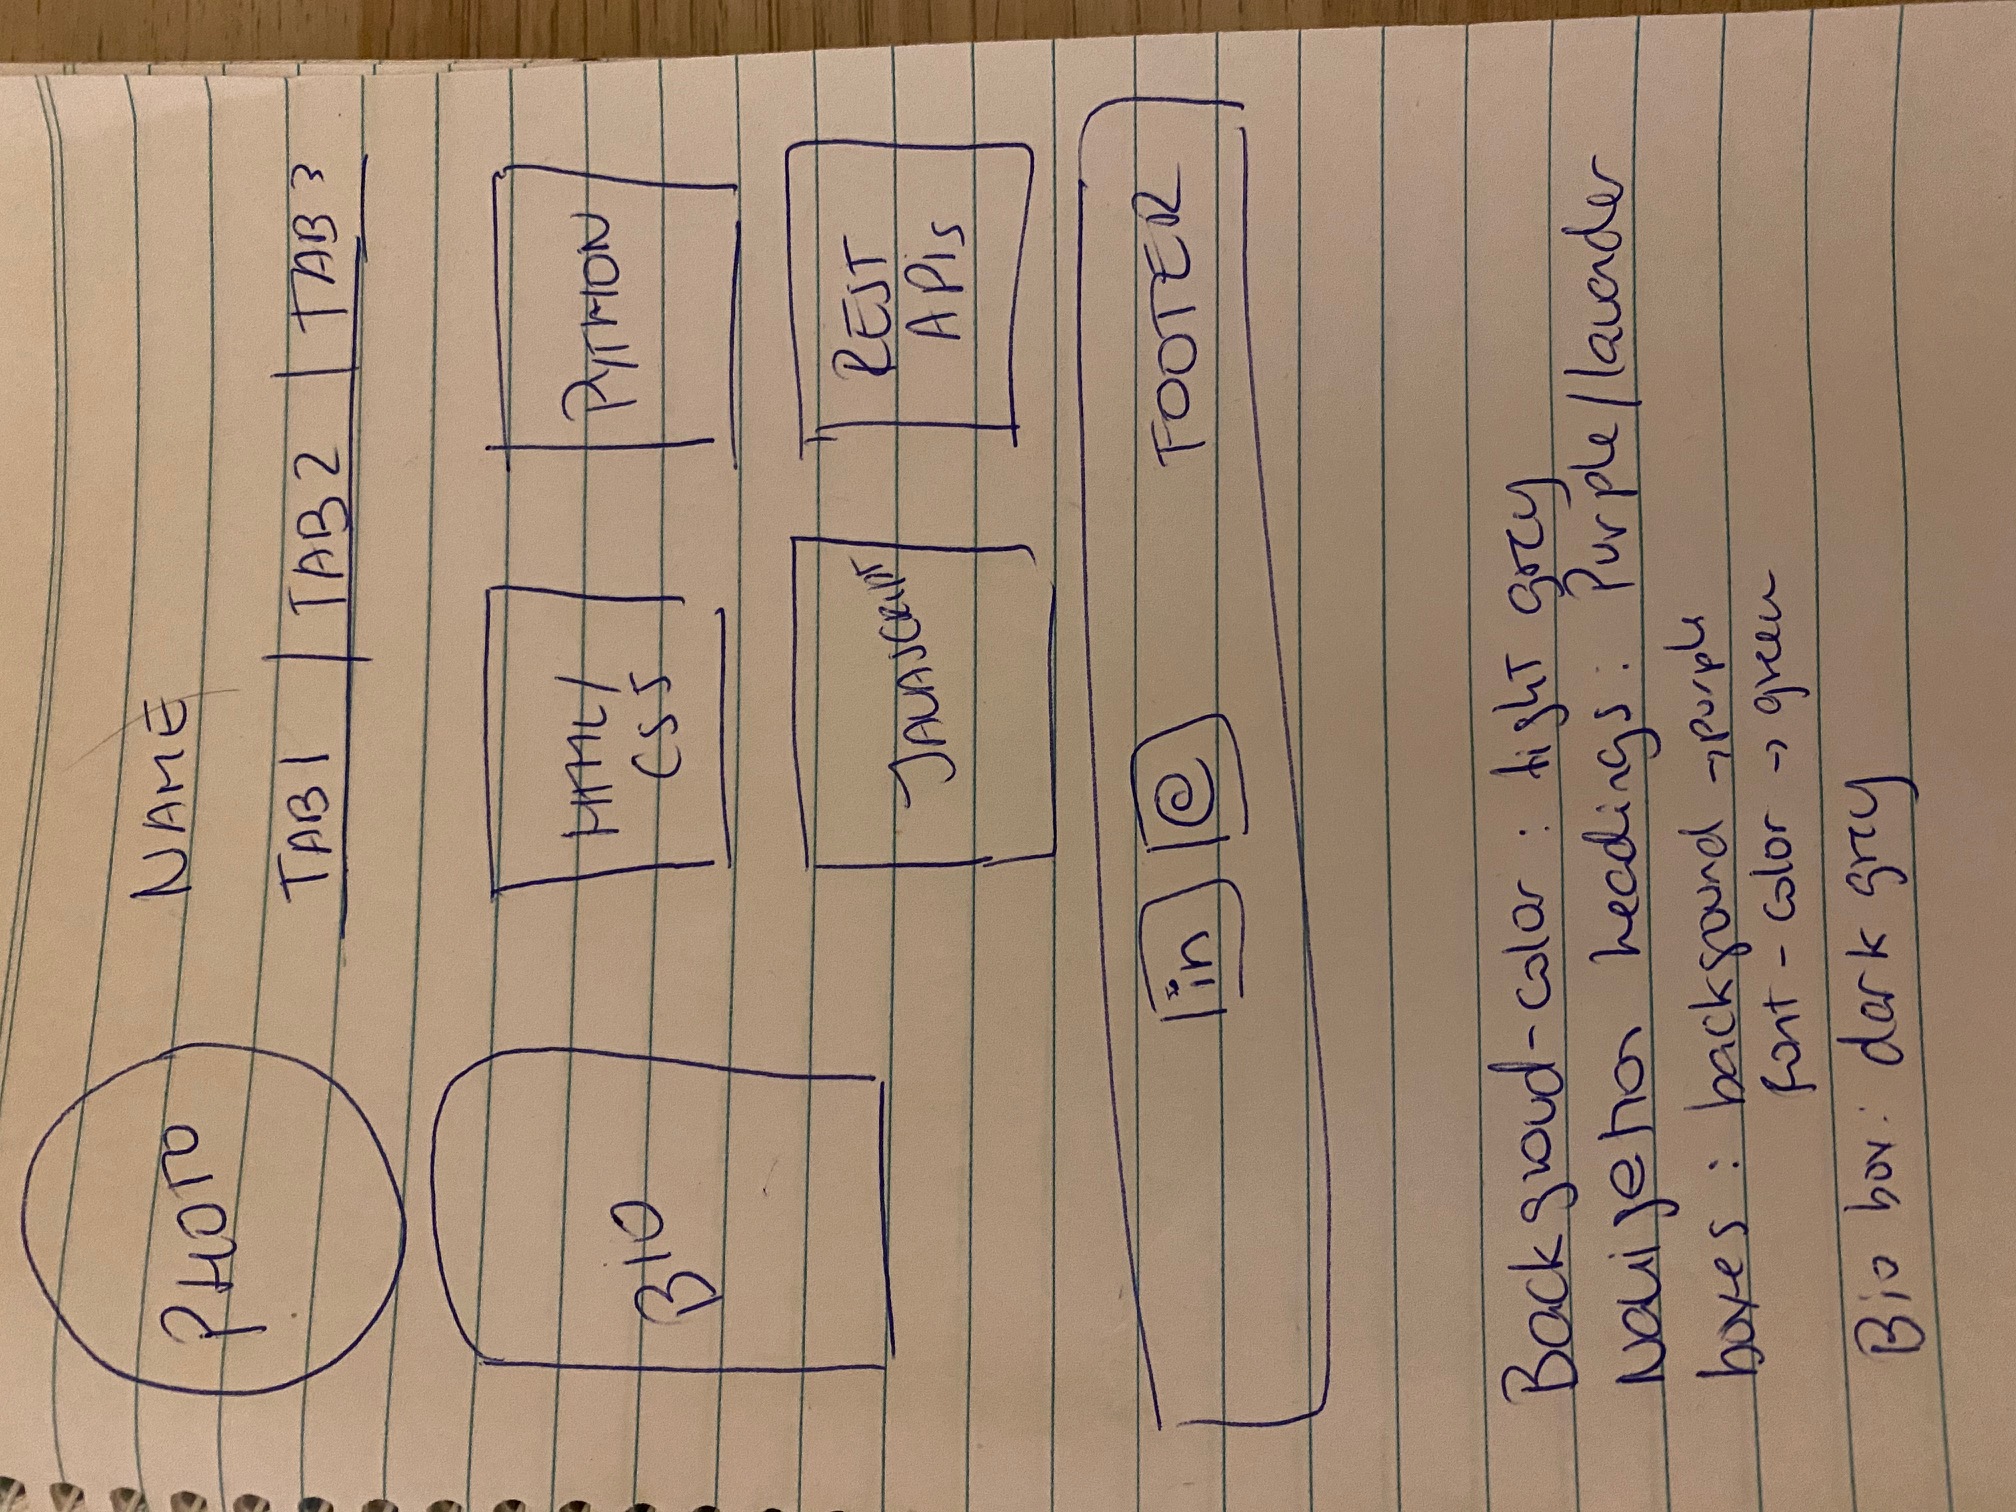 PHOTO
NAME
TAB1 | TAB2 | TAB3
BiO
HTML/
CSS
PYTHON
JAVASCRIPT
REST
APis
in
@
FOOTER
Backgroud-color: light grey
Navigation headings: Purple/lavander
boxes: background → purple
font-color → green
Bio box: dark grey